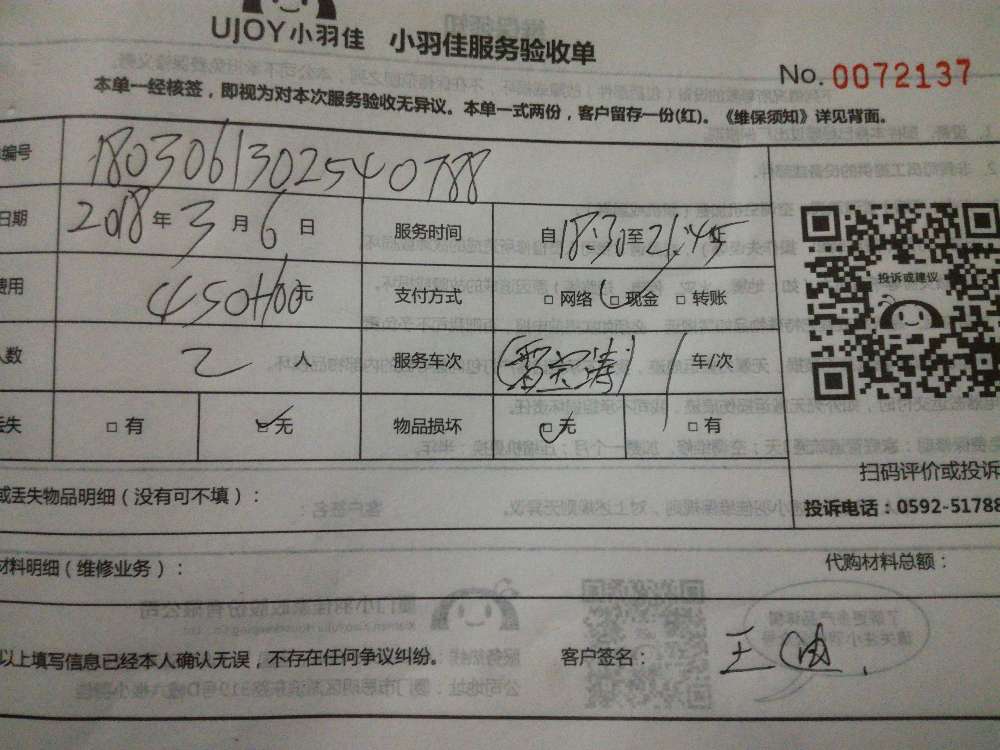 UJOY小羽佳 小羽佳服务验收单
No. 0072137
本单一经核签，即视为对本次服务验收无异议。本单一式两份，客户留存一份(红)。《维保须知》详见背面。
编号 1803061302540788
日期 2018年3月6日 服务时间 自18:30至21:45
费用 450+100元 支付方式 □网络 □现金 □转账
人数 2人 服务车次 1车/次
丢失 □有 □无 物品损坏 □无 □有
投诉或建议
扫码评价或投诉
或丢失物品明细（没有可不填）：
投诉电话：0592-51788
材料明细（维修业务）：
代购材料总额：
以上填写信息已经本人确认无误，不存在任何争议纠纷。 客户签名： 王